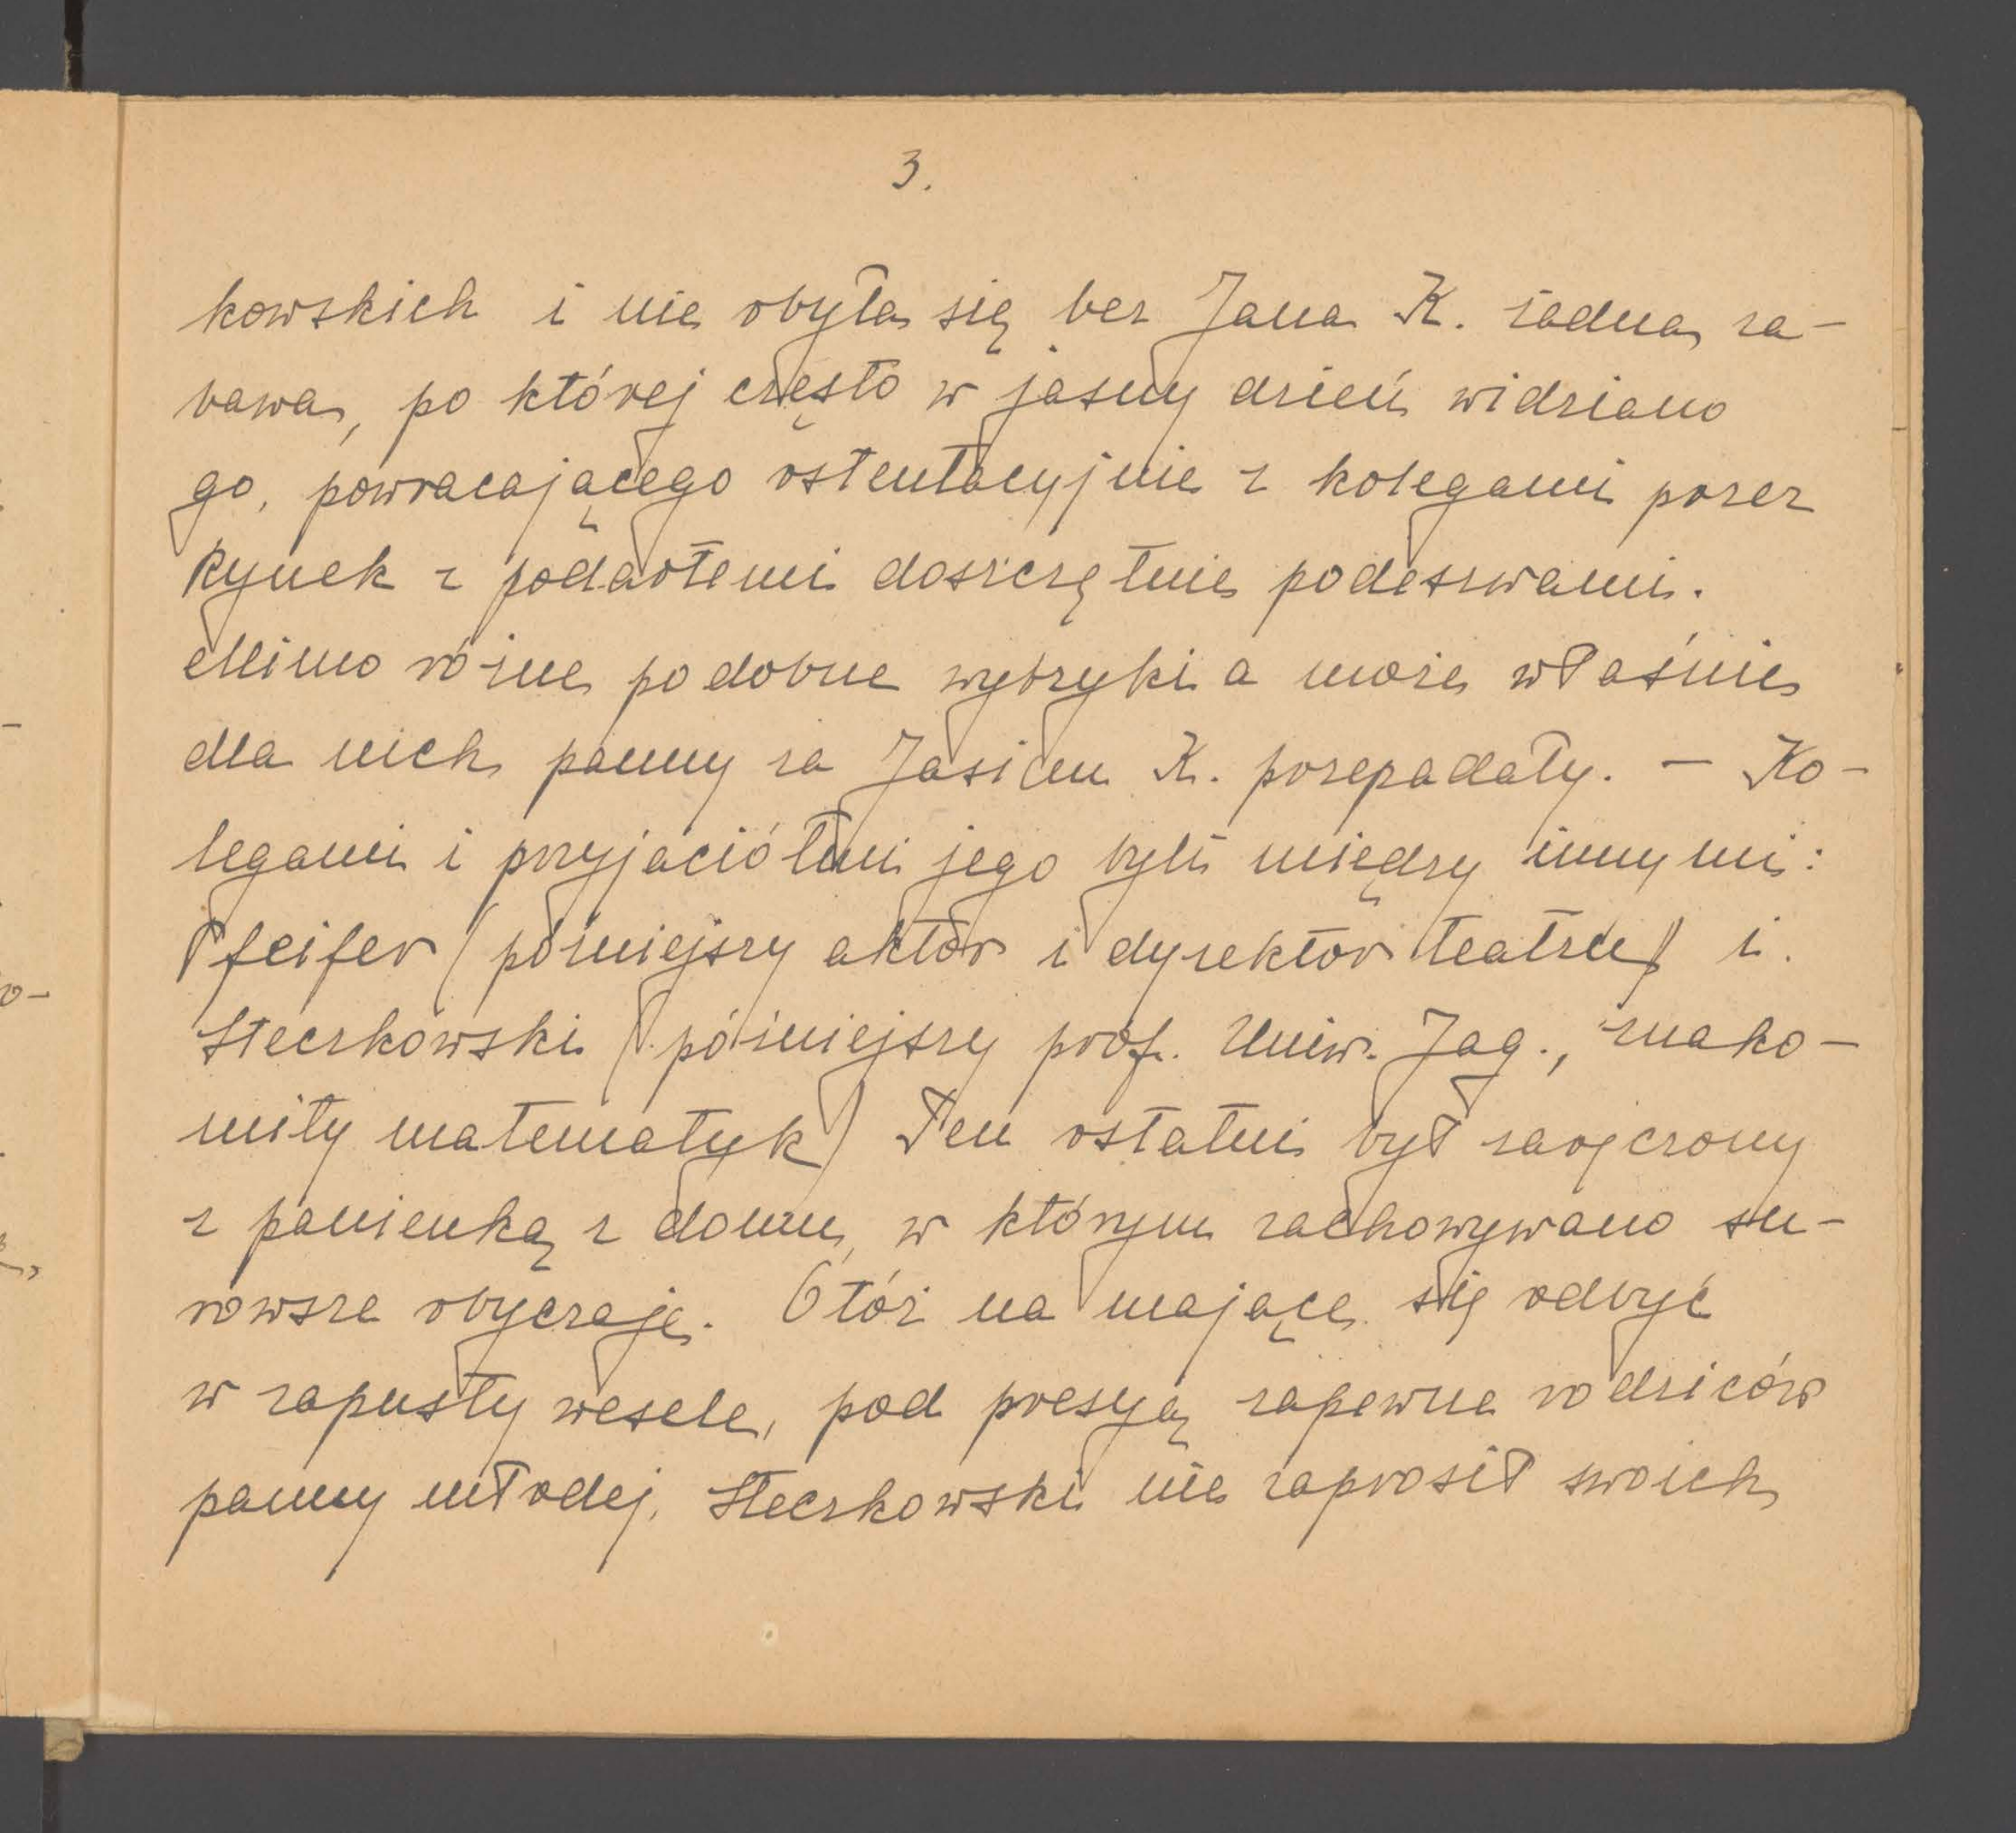 3.
kowskich i nie obyła się bez Jana K. żadna za-
bawa, po której często w jasny dzień widziano
go, powracającego ostentacyjnie z kolegami przez
Rynek z podartemi doszczętnie podeszwami.
Mimo różne podobne wybryki a może właśnie
dla nich panny za Jasiem K. przepadały. — Ko-
legami i przyjaciółmi jego byli między innymi:
Pfeifer (późniejszy aktor i dyrektor teatru) i
Steczkowski (późniejszy prof. Uniw. Jag., znako-
mity matematyk) Ten ostatni był zaręczony
z panienką z domu, w którym zachowywano su-
rowsze obyczaje. Otóż na mające się odbyć
w zapusty wesele, pod presyą zapewne rodziców
panny młodej, Steczkowski nie zaprosił swoich